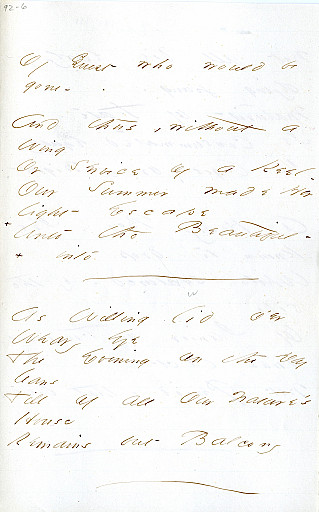 92-6
Of Guest who would be
gone -
And thus, without a
Wing
Or service of a Keel
Our Summer made her
light Escape
+ Unto the Beautiful -
+ into
As Willing lid o'er
Weary Eye
The Evening on the Day
leans
Till of all our Nature's
House
Remains but Balcony